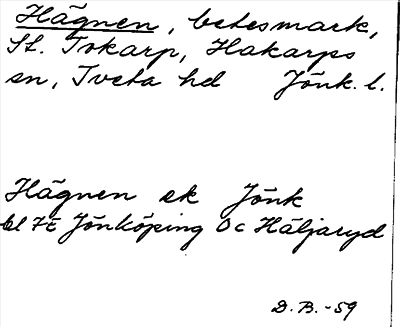 Hägnen, betesmark,
St. Tokarp, Hakarps
sn, Tveta hd Jönk. l.
Hägnen ek Jönk
bl 7E Jönköping Oc Häljaryd
D.B.-59